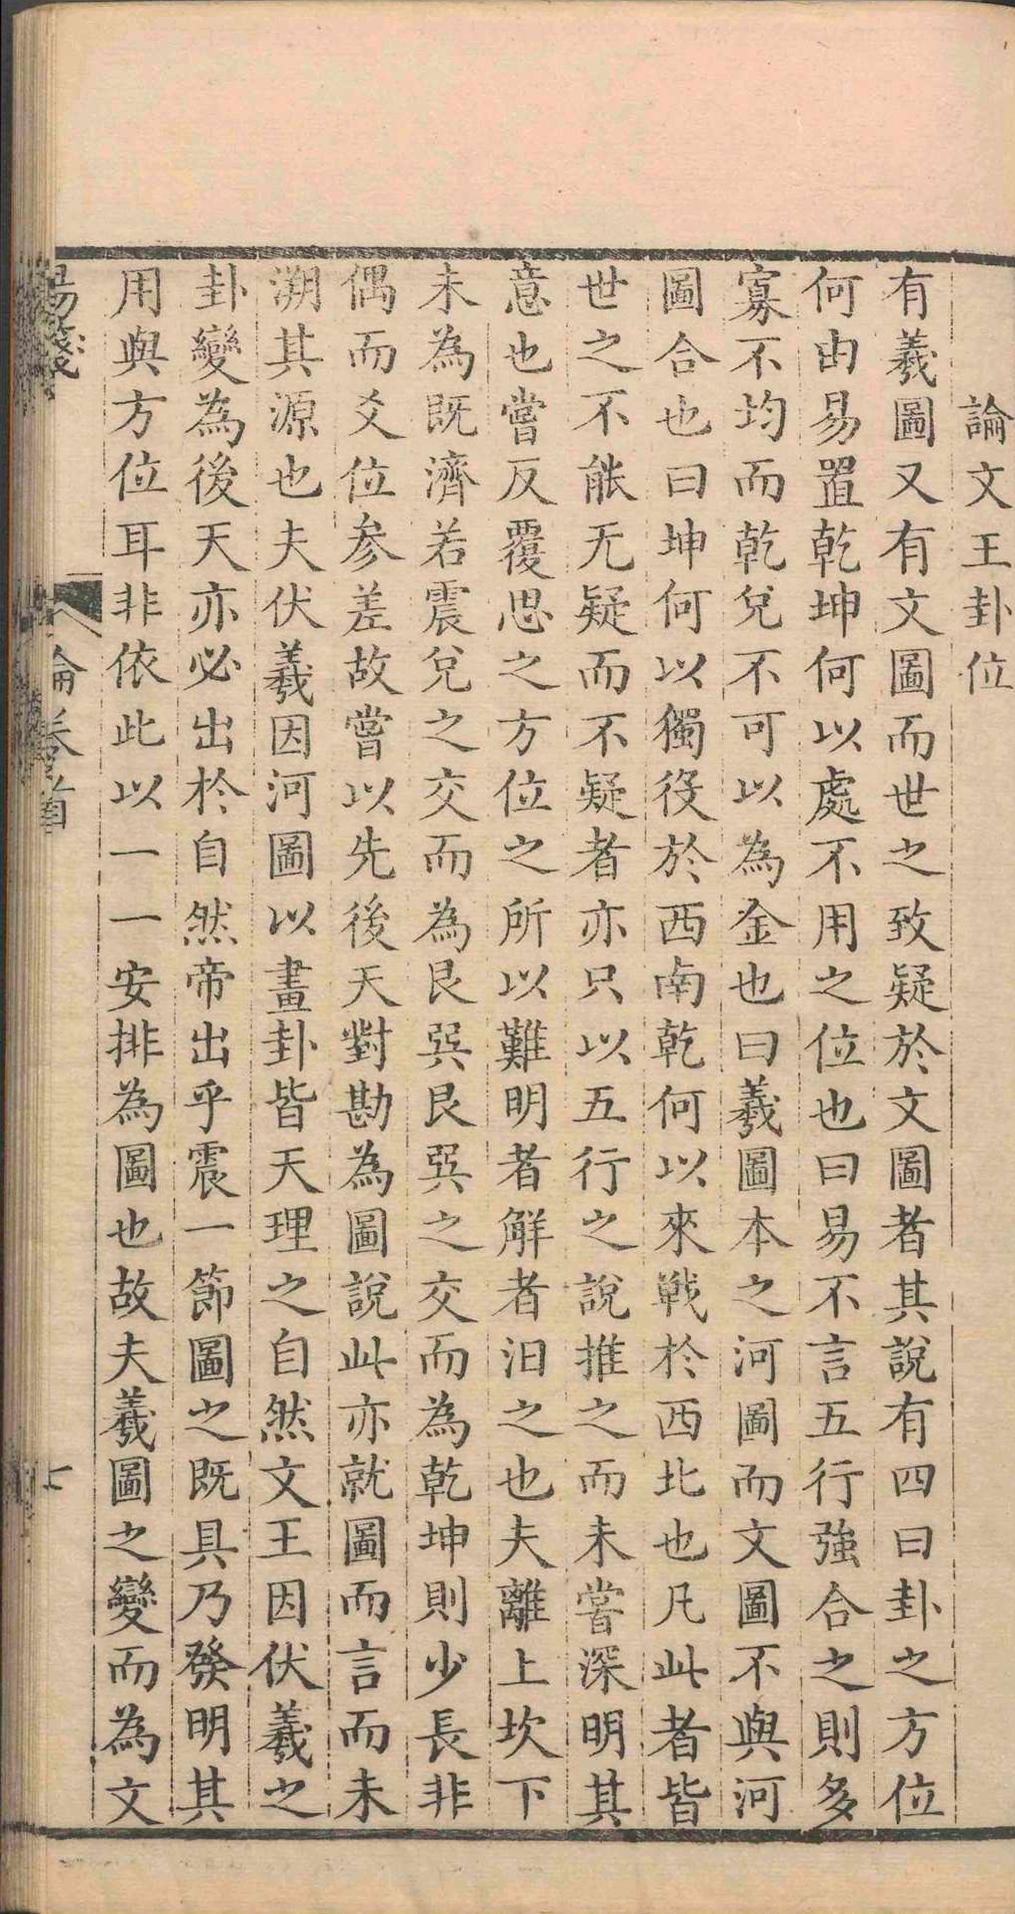 論文王卦位
有羲圖又有文圖而世之致疑於文圖者其說有四曰卦之方位
何由易置乾坤何以處不用之位也曰易不言五行強合之則多
寡不均而乾兌不可以為金也曰羲圖本之河圖而文圖不與河
圖合也曰坤何以獨役於西南乾何以來戰於西北也凡此者皆
世之不能无疑而不疑者亦只以五行之說推之而未嘗深明其
意也嘗反覆思之方位之所以難明者解者汩之也夫離上坎下
未為既濟若震兌之交而為艮巽艮巽之交而為乾坤則少長非
偶而爻位参差故嘗以先後天對勘為圖說此亦就圖而言而未
溯其源也夫伏羲因河圖以畫卦皆天理之自然文王因伏羲之
卦變為後天亦必出於自然帝出乎震一節圖之既具乃發明其
用與方位耳非依此以一一安排為圖也故夫羲圖之變而為文
易箋
論卷首
七